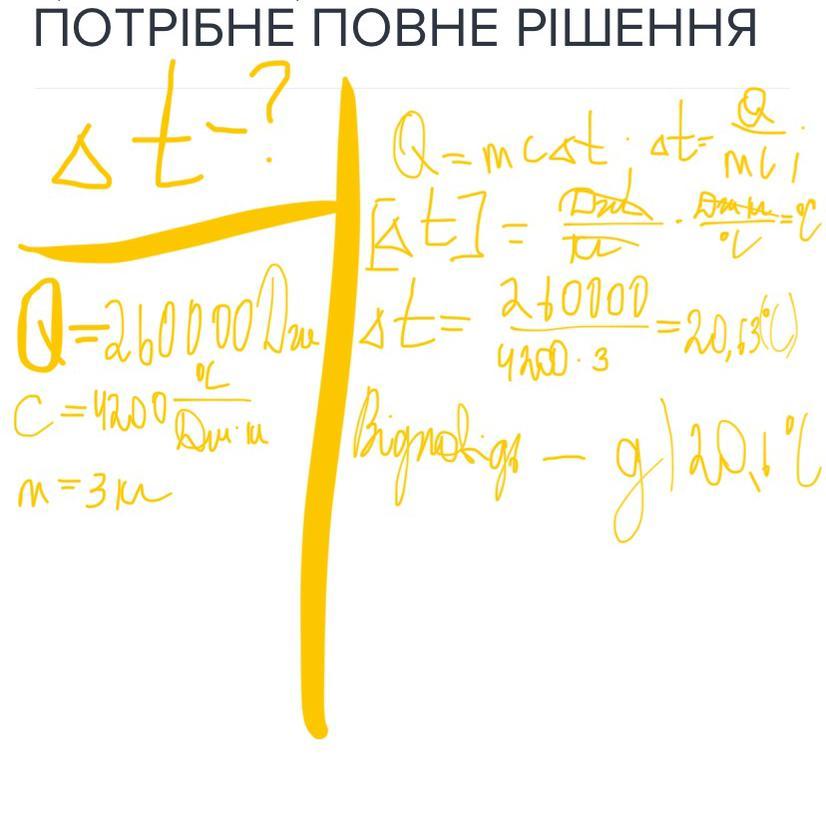 ПОТРІБНЕ ПОВНЕ РІШЕННЯ
Δt - ?
Q = 260000 Дж
C = 4200 °C / Дж·кг
m = 3 кг
Q = mcΔt; Δt = Q / mc;
[Δt] = Дж / кг · Дж·кг / °C = °C
Δt = 260000 / 4200 · 3 = 20,63(°C)
Відповідь — д) 20,6 °C